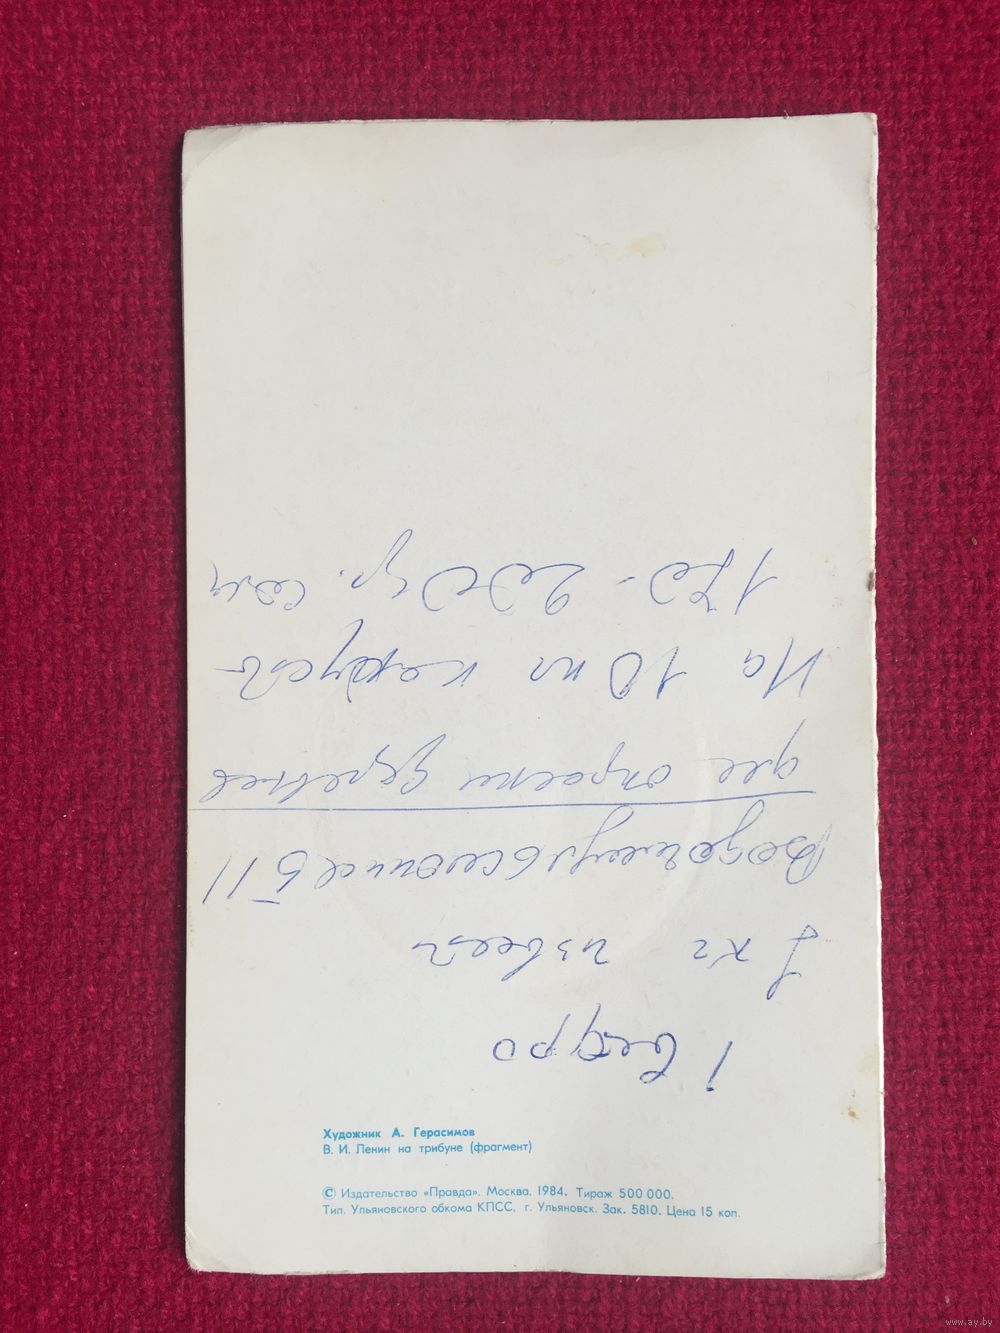 1 ведро
1 кг извест
Водоэмульсионн 5 л
для окраски деревьев
На 10 кг капуст
170-200 гр. соли
Художник А. Герасимов
В. И. Ленин на трибуне (фрагмент)
© Издательство «Правда». Москва. 1984. Тираж 500 000.
Тип. Ульяновского обкома КПСС, г. Ульяновск. Зак. 5810. Цена 15 коп.
www.ay.by